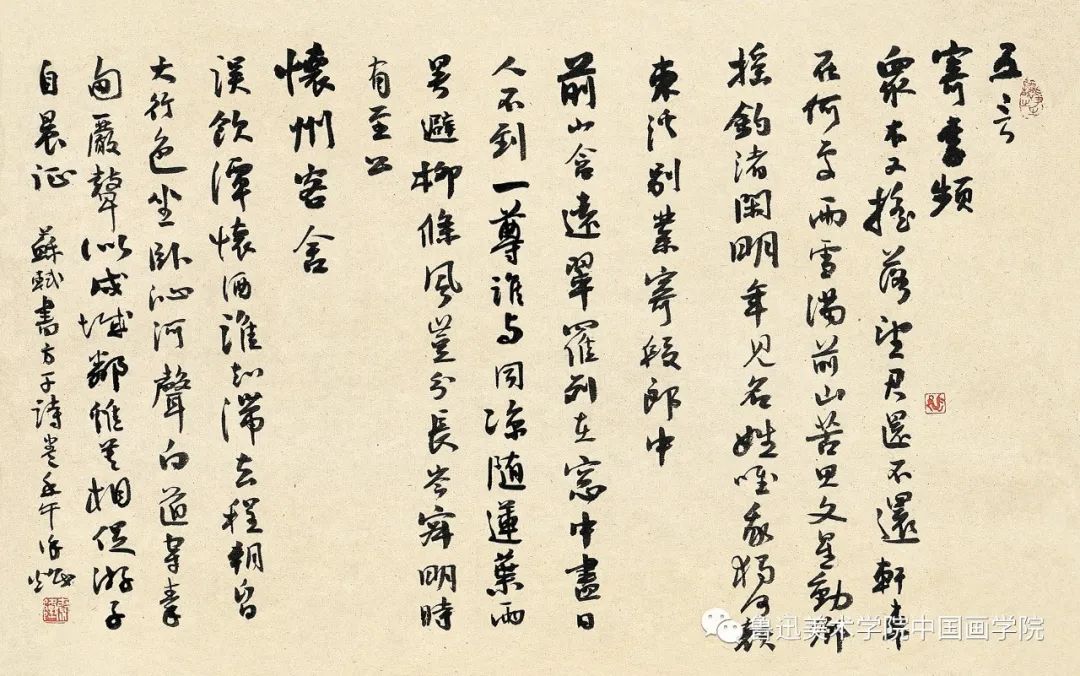 五言
寄李頻
眾木又搖落望君還不還軒車
在何處雨雪滿前山苦思文星動鄉
搖釣渚閑明年見名姓唯我獨何顏
東溪別業寄段郎中
前山含遠翠羅列在窓中盡日
人不到一尊誰與同涼随蓮葉雨
暑避柳條風豈分長岑寂明時
有至公
懷州客舍
誤飲潭懷酒誰知滯去程朝昏
大行色坐臥沁河聲白道穿秦
甸嚴鼙似戍城鄰莫相促游子
自晨征
蘇軾書方干詩卷
鲁迅美术学院中国画学院